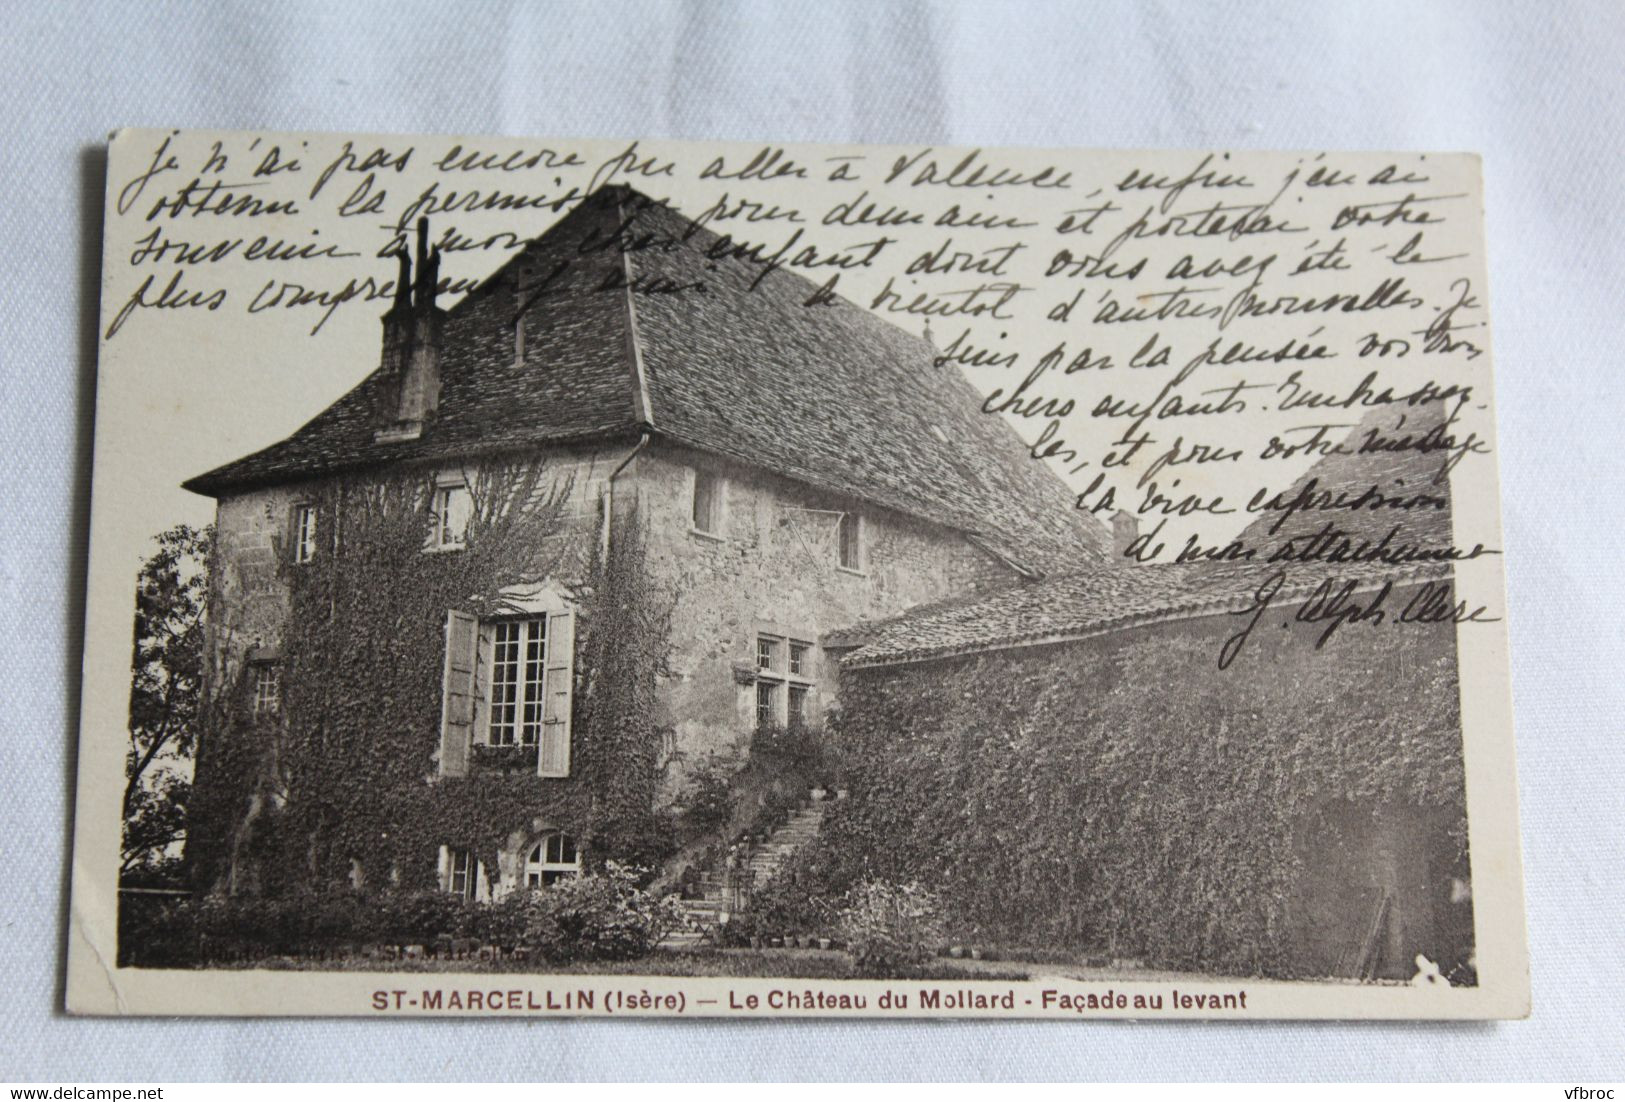 je n'ai pas encore pu aller à Valence, enfin j'en ai
obtenu la permission pour demain et porterai votre
souvenir à mon cher enfant dont vous avez été le
plus compréhensif ami. à bientôt d'autres nouvelles. Je
suis par la pensée vos trois
chers enfants. Embrassez-
les, et pour votre ménage
la vive expression
de mon attachement
J. Alph. Clerc
St-Marcellin
ST-MARCELLIN (Isère) — Le Château du Mollard - Façade au levant
vfbroc